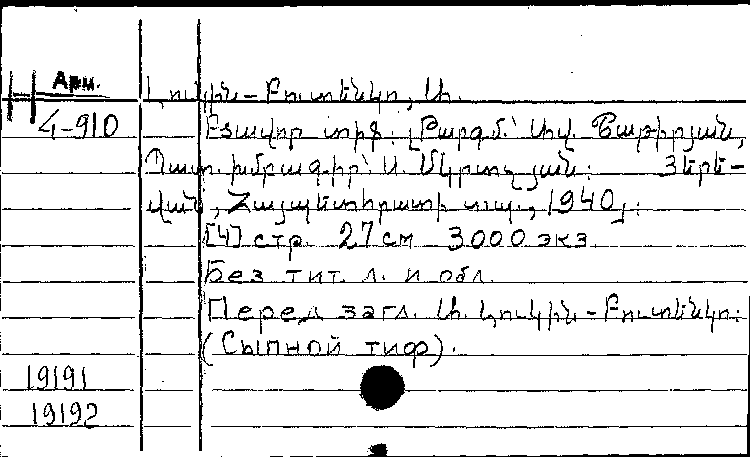 Арм.
Լուկին-Բուտենկո, Ա.
Н 4-910
Բծավոր տիֆ: [Թարգմ.՝ Ավ. Շաթիրյան,
Պատ. խմբագիր՝ Ա. Մկրտչյան: Յերե-
վան, Հայպետհրատի տպ., 1940]:
[4] стр. 27 см 3000 экз.
Без тит. л. и обл.
Перед загл. Ա. Լուկին-Բուտենկո:
(Сыпной тиф).
19191
19192